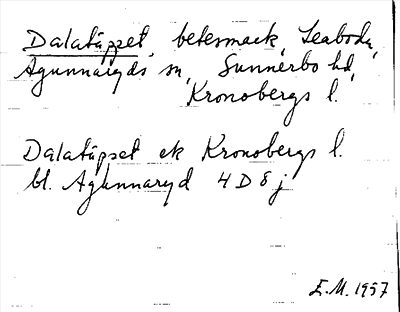 Dalatäppet, betesmark, Leaboda,
Agunnaryds sn, Sunnerbo hd,
Kronobergs l.
Dalatäppet ek Kronobergs l.
bl. Agunnaryd 4D8j
E.M. 1957